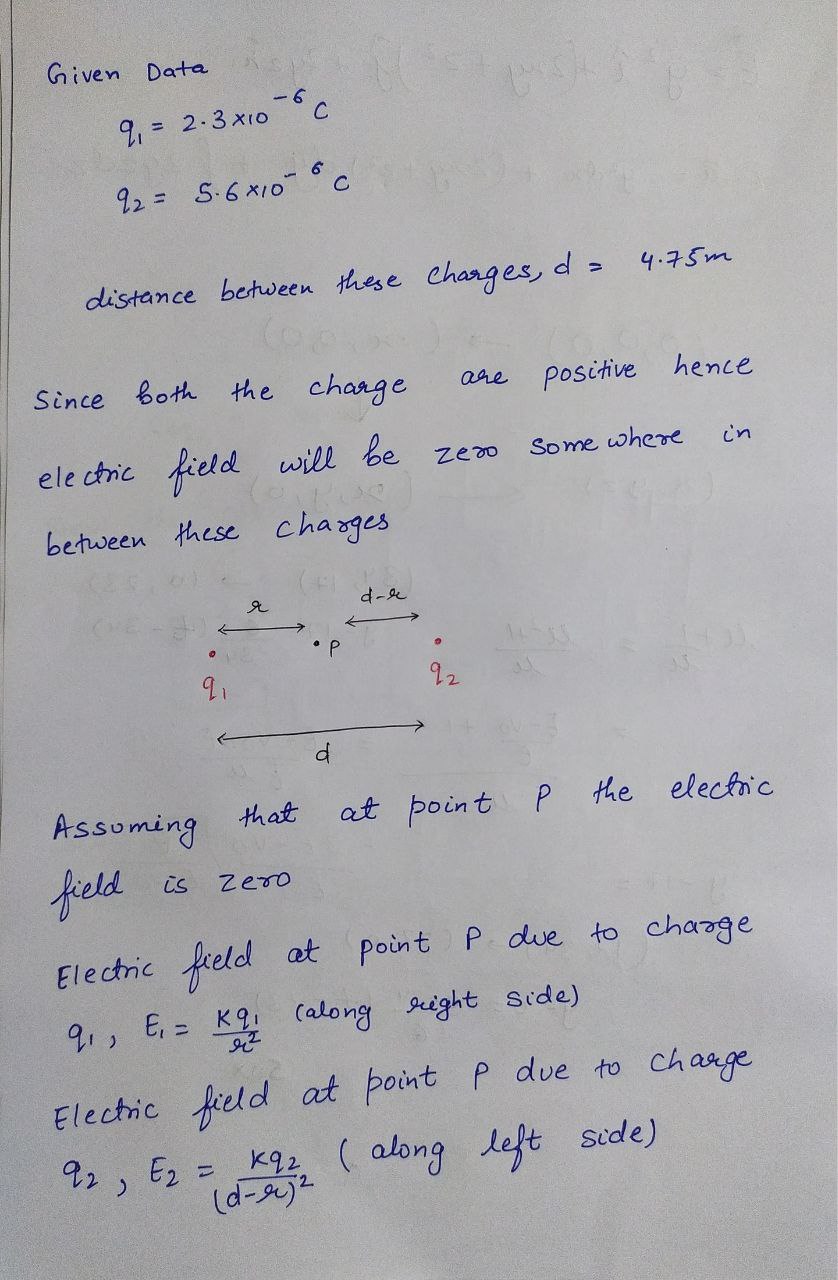 Given Data
q₁ = 2.3 x10⁻⁶ C
q₂ = 5.6 x10⁻⁶ C
distance between these charges, d = 4.75m
Since both the charge are positive hence
electric field will be zero somewhere in
between these charges
r d-r
•P
q₁ q₂
d
Assuming that at point P the electric
field is zero
Electric field at point P due to charge
q₁, E₁ = Kq₁/r² (along right side)
Electric field at point P due to charge
q₂, E₂ = Kq₂/(d-r)² (along left side)